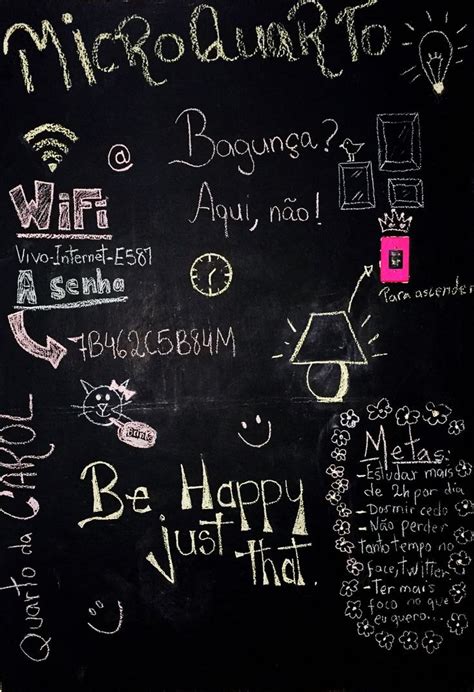 MicroQuarto
@
Bagunça?
Aqui, não!
WiFi
Vivo-Internet-E581
A senha
7B462C5B84M
Para ascender
Quarto da CAROL
Be Happy
just
that.
Metas:
-Estudar mais
de 2h por dia
-Dormir cedo
-Não perder
tanto tempo no
face, twitter
-Ter mais
foco no que
eu quero...